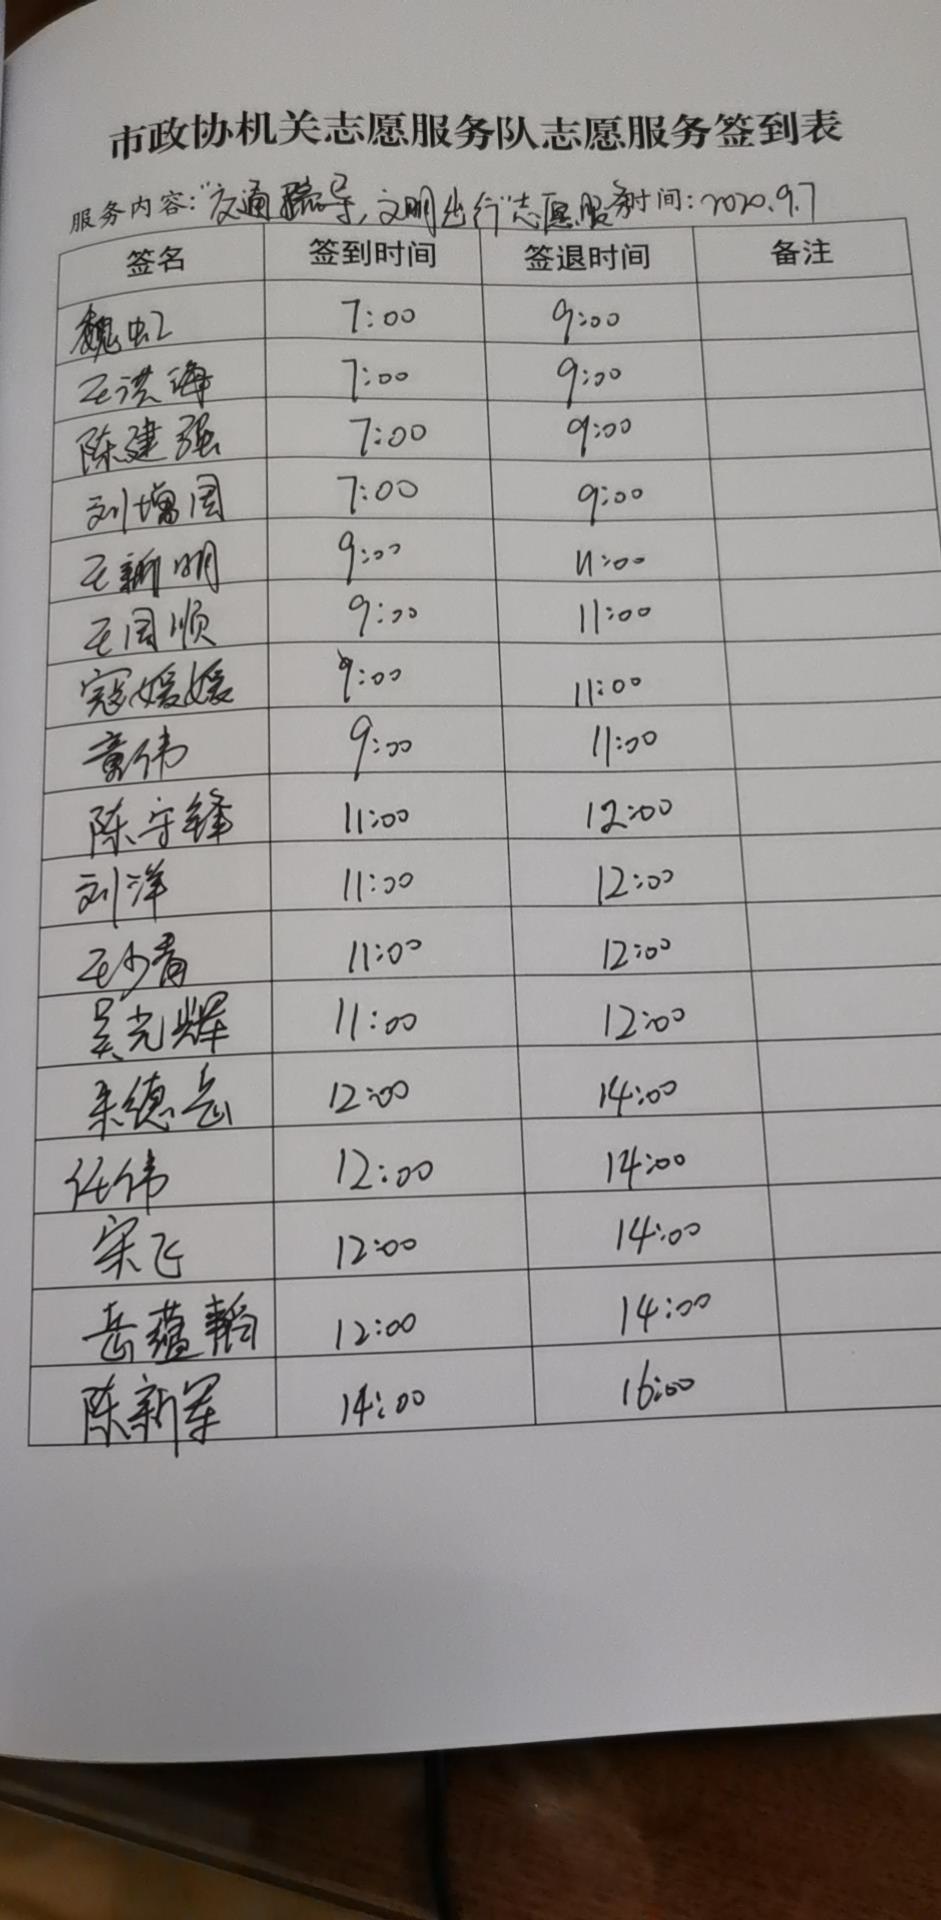 市政协机关志愿服务队志愿服务签到表
服务内容：“交通疏导，文明出行”志愿服务 时间：2020.9.7
签名 签到时间 签退时间 备注
魏虹 7:00 9:00
王洪海 7:00 9:00
陈建强 7:00 9:00
刘增国 7:00 9:00
王新明 9:00 11:00
王国顺 9:00 11:00
寇媛媛 9:00 11:00
童伟 9:00 11:00
陈守锋 11:00 12:00
刘洋 11:00 12:00
王少青 11:00 12:00
吴光辉 11:00 12:00
德岳 12:00 14:00
任伟 12:00 14:00
宋飞 12:00 14:00
岳蕴韬 12:00 14:00
陈新军 14:00 16:00